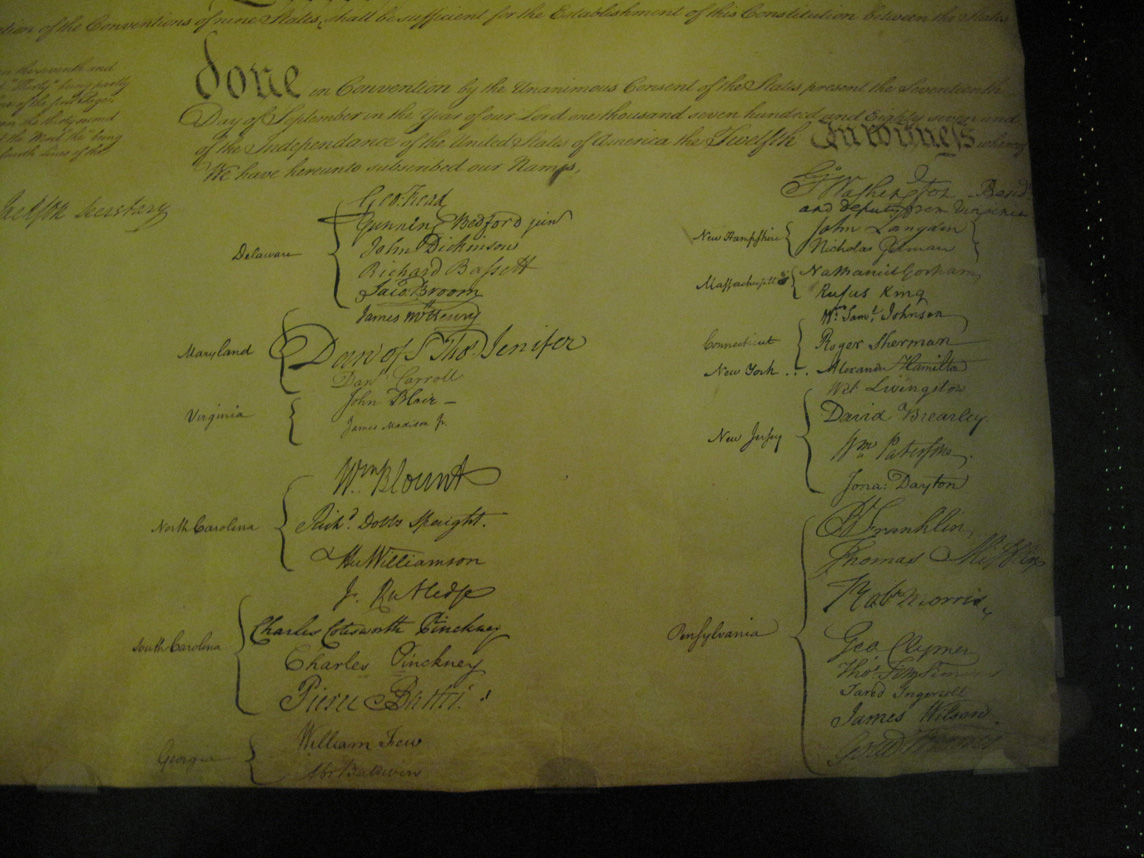 tion of the Conventions of nine States, shall be sufficient for the Establishment of this Constitution between the States
done in Convention by the Unanimous Consent of the States present the Seventeenth
Day of September in the Year of our Lord one thousand seven hundred and Eighty seven and
of the Independance of the United States of America the Twelfth In witness whereof
We have hereunto subscribed our Names,
Secretary
Delaware
Geo: Read
Gunning Bedford jun
John Dickinson
Richard Bassett
Jaco: Broom
Maryland
James McHenry
Dan of St Thos. Jenifer
Danl Carroll
Virginia
John Blair —
James Madison Jr.
North Carolina
Wm Blount
Richd. Dobbs Spaight.
Hu Williamson
South Carolina
J. Rutledge
Charles Cotesworth Pinckney
Charles Pinckney
Pierce Butler.
Georgia
William Few
Abr Baldwin
Go: Washington
and deputy from Virginia
New Hampshire
John Langdon
Nicholas Gilman
Massachusetts
Nathaniel Gorham
Rufus King
Connecticut
Wm. Saml. Johnson
Roger Sherman
New York . . .
Alexander Hamilton
New Jersey
Wil: Livingston
David Brearley.
Wm Paterson.
Jona: Dayton
Pensylvania
B Franklin
Thomas Mifflin
Robt Morris
Geo. Clymer
Thos. FitzSimons
Jared Ingersoll
James Wilson.
Gouv Morris